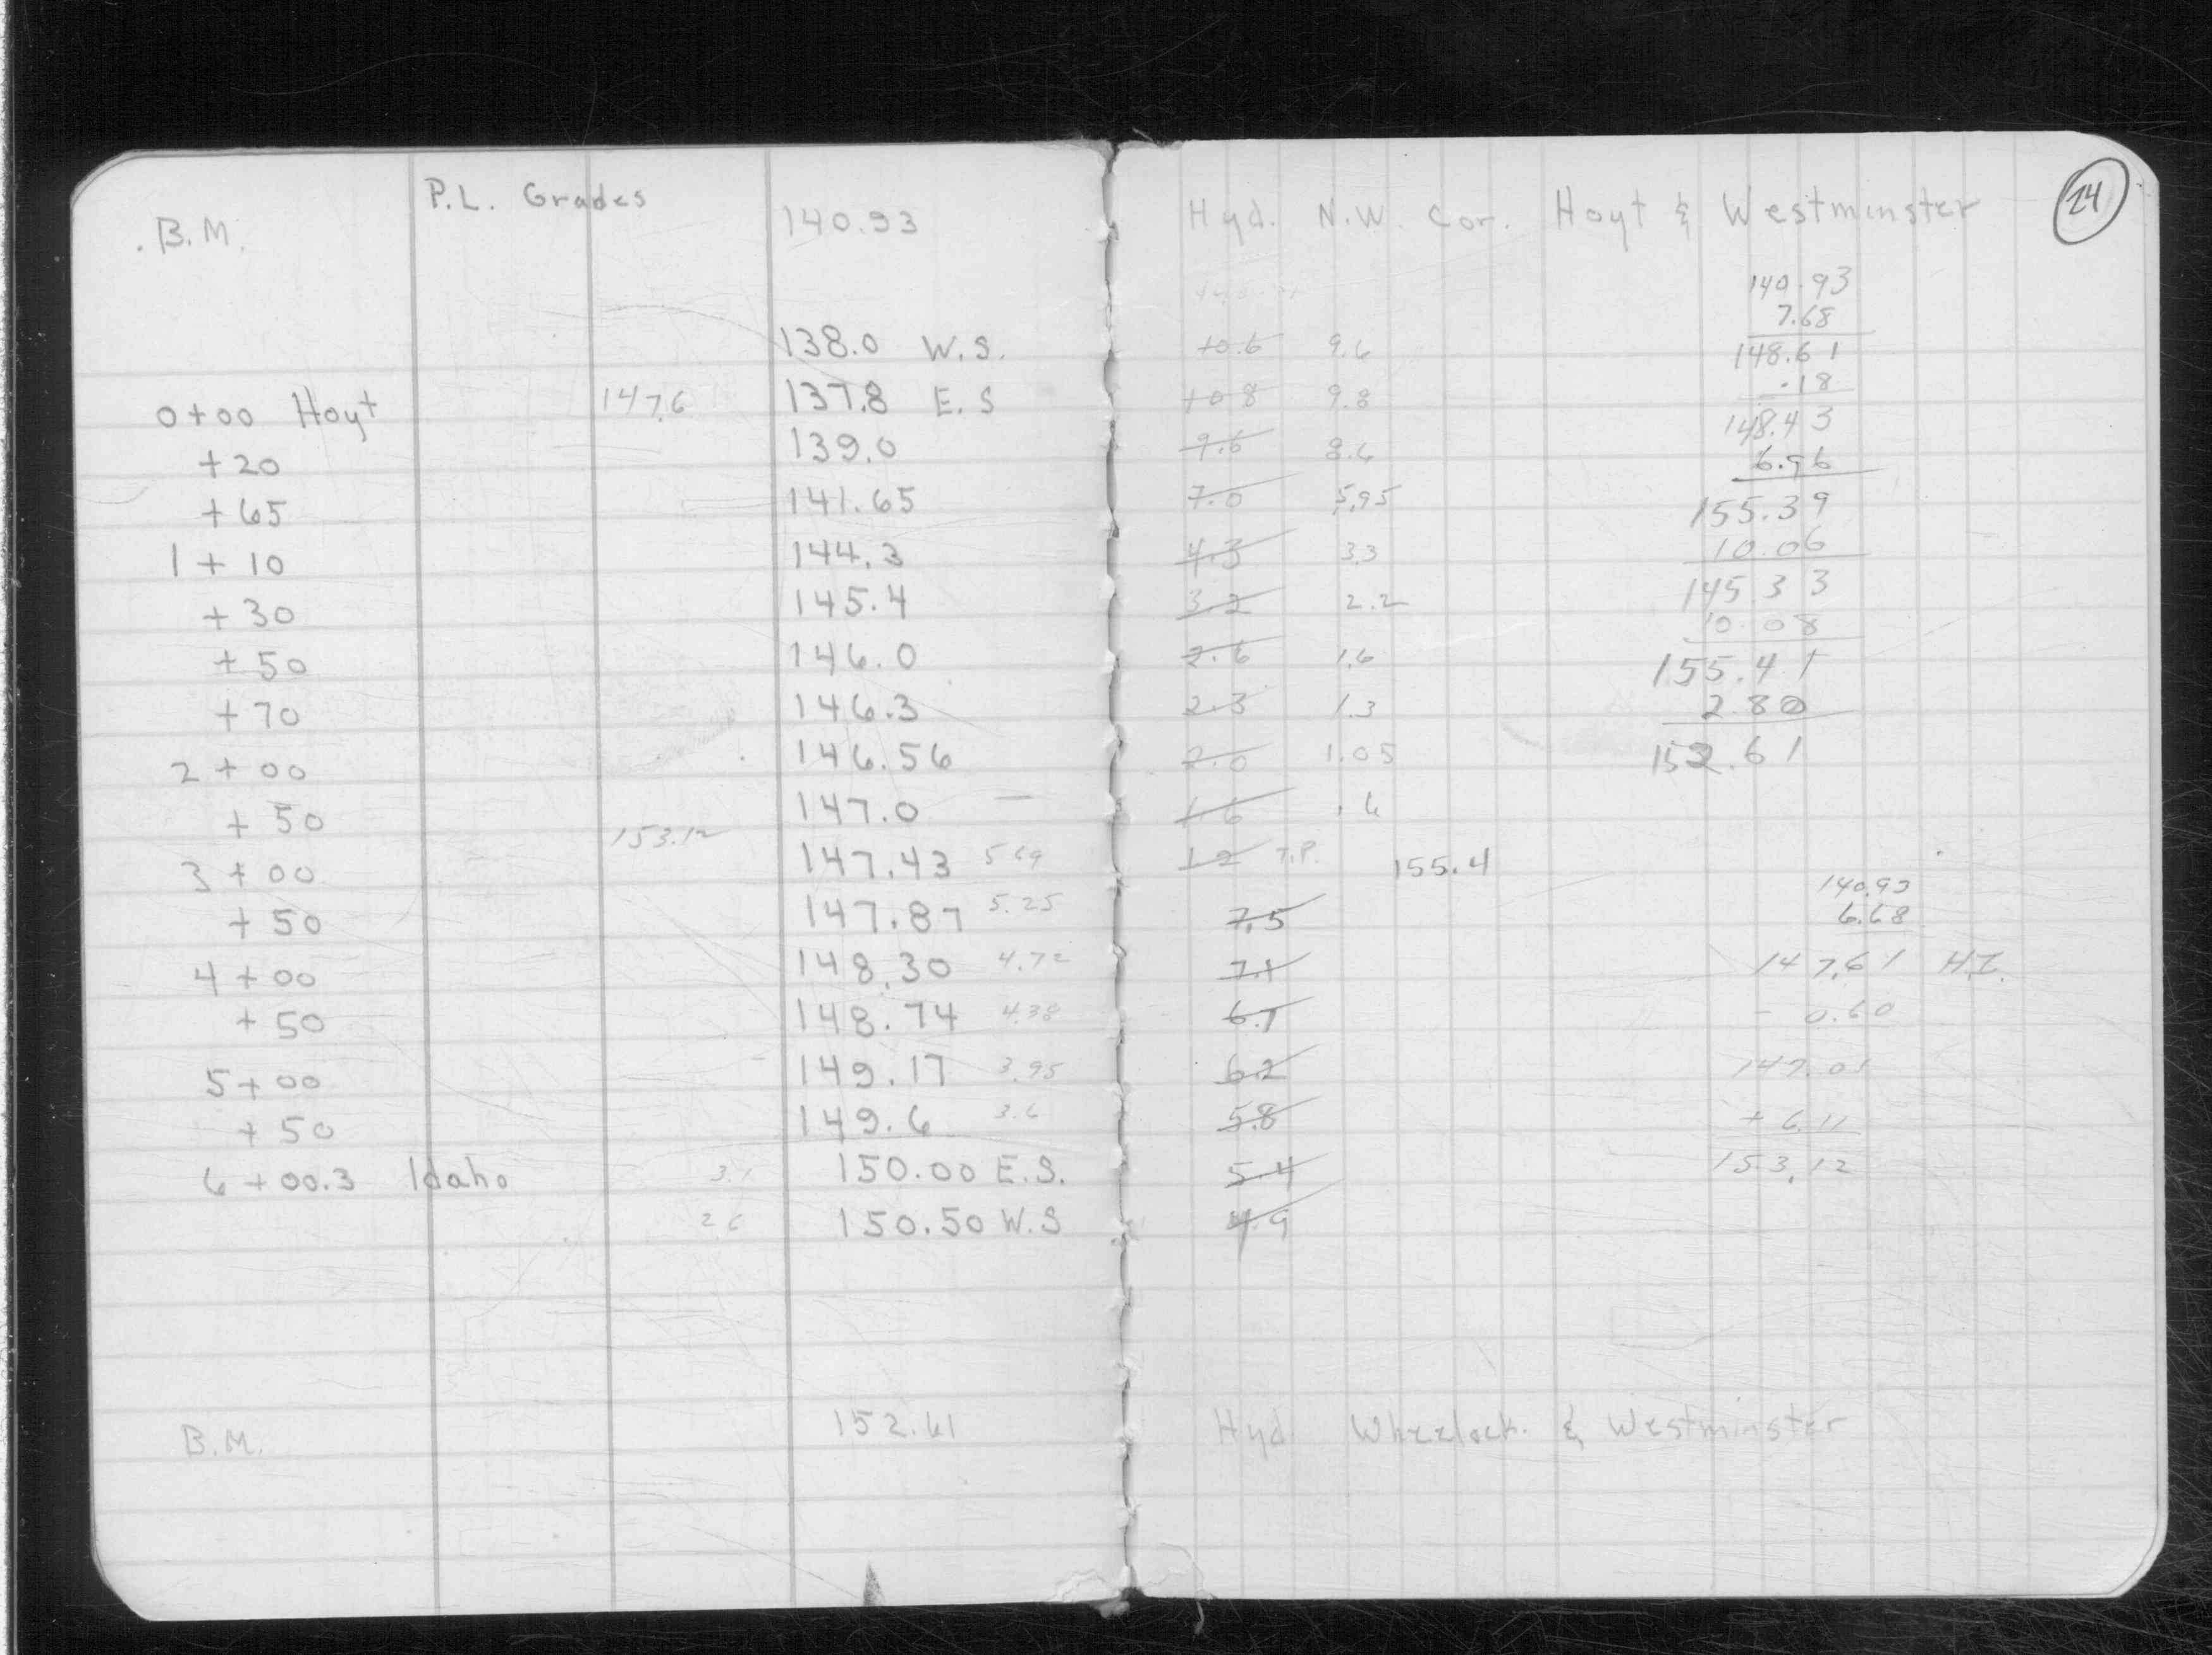 24
P.L. Grades
B.M. 140.93 Hyd. N.W. Cor. Hoyt & Westminster
138.0 W.S. 10.6 9.6
0+00 Hoyt 147.6 137.8 E.S 10.8 9.8
+20 139.0 9.6 8.6
+65 141.65 7.0 5.95
1+10 144.3 4.3 3.3
+30 145.4 3.2 2.2
+50 146.0 2.6 1.6
+70 146.3 2.3 1.3
2+00 146.56 2.0 1.05
+50 147.0 — 1.6 .6
3+00 153.12 147.43 5.69 1.2 T.P. 155.4
+50 147.87 5.25 7.5
4+00 148.30 4.72 7.1
+50 148.74 4.38 6.7
5+00 149.17 3.95 6.2
+50 149.6 3.6 5.8
6+00.3 Idaho 3.1 150.00 E.S. 5.4
2.6 150.50 W.S 4.9
B.M. 152.61 Hyd. Wheelock & Westminster
140.93
7.68
148.61
.18
148.43
6.96
155.39
10.06
145.33
10.08
155.41
2.80
152.61
140.93
6.68
147.61 H.I.
- 0.60
147.01
+ 6.11
153.12